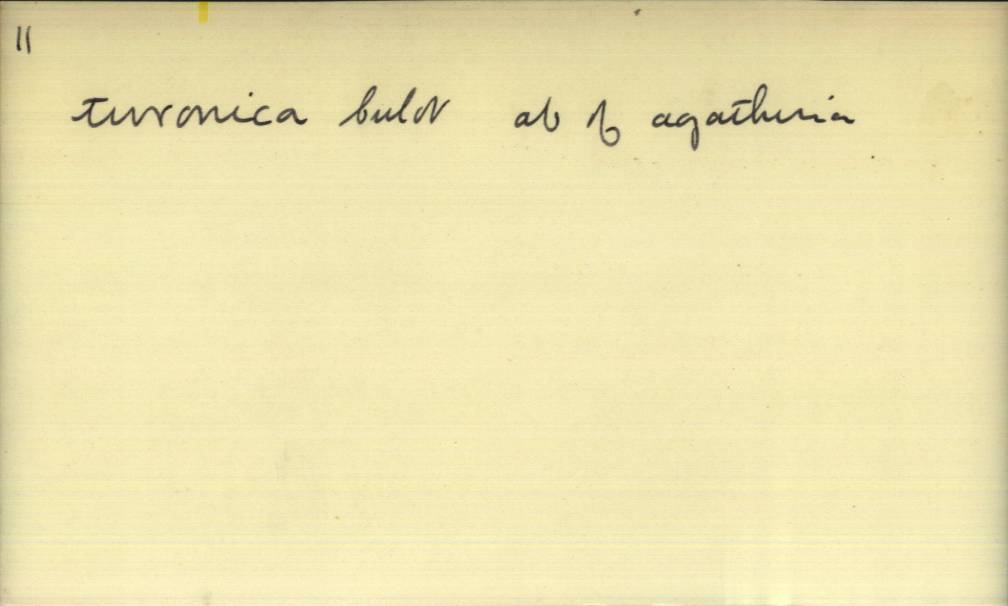 11
turonica bulov ab of agathina